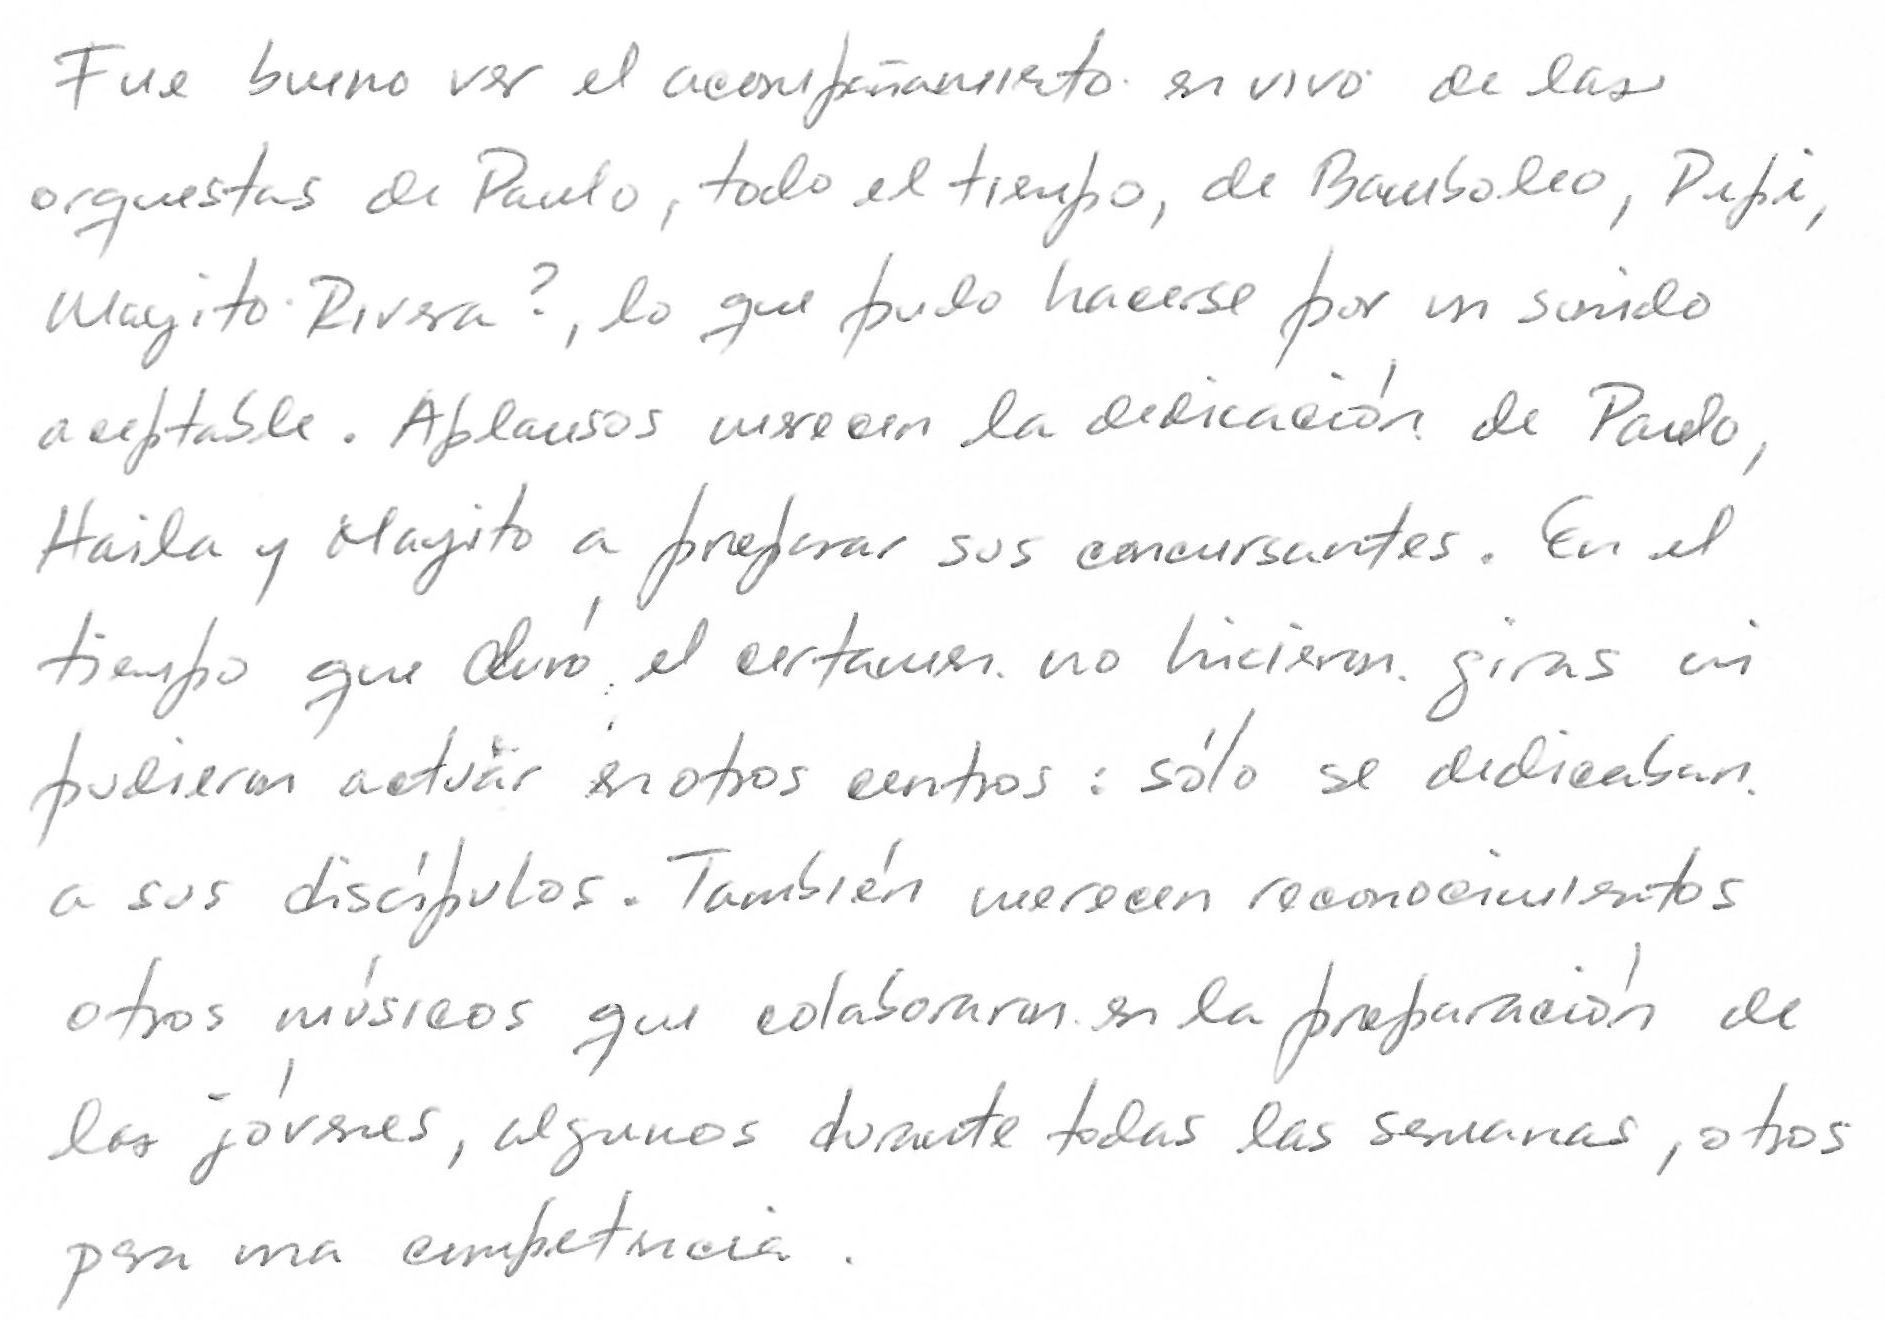 Fue bueno ver el acompañamiento en vivo de las
orquestas de Paulo, todo el tiempo, de Bamboleo, Pupi,
Mayito Rivera?, lo que pudo hacerse por un sonido
aceptable. Aplausos merecen la dedicación de Paulo,
Haila y Mayito a preparar sus concursantes. En el
tiempo que duró el certamen no hicieron giras ni
pudieron actuar en otros centros: sólo se dedicaban
a sus discípulos. También merecen reconocimientos
otros músicos que colaboraron en la preparación de
los jóvenes, algunos durante todas las semanas, otros
para una competencia.